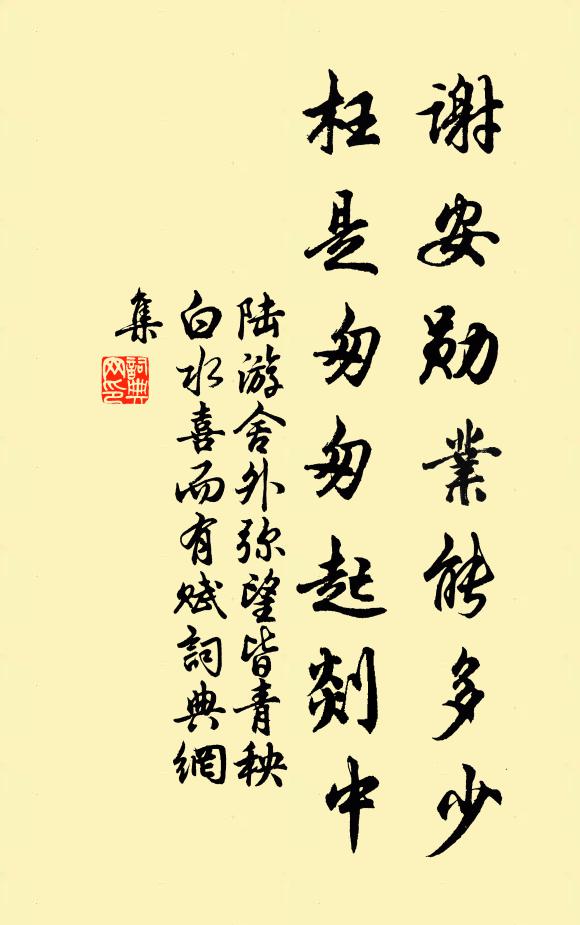 谢安勋業能多少
枉是匆匆起剡中
陆游舍外弥望皆青秧
白水喜而有赋詞典網
集
詞典網印